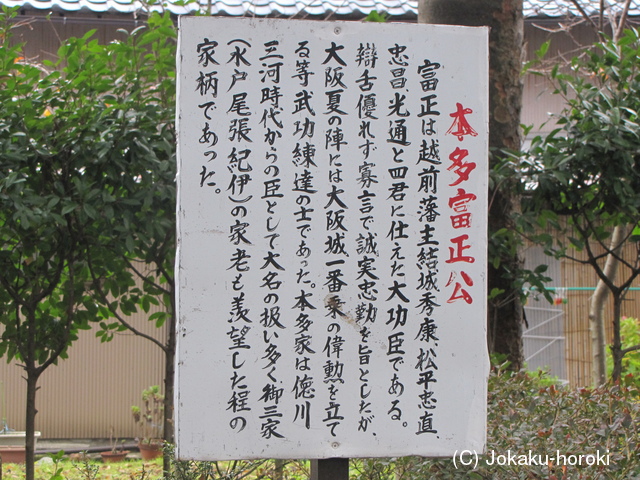 本多富正公
富正は越前藩主結城秀康、松平忠直、
忠昌、光通と四君に仕えた大功臣である。
辯舌優れず寡言で誠実忠勤を旨としたが、
大阪夏の陣には大阪城一番乗の偉勲を立て
る等武功練達の士であった。本多家は徳川
三河時代からの臣として大名の扱い多く御三家
(水戸尾張紀伊)の家老も羨望した程の
家柄であった。
(C) Jokaku-horoki